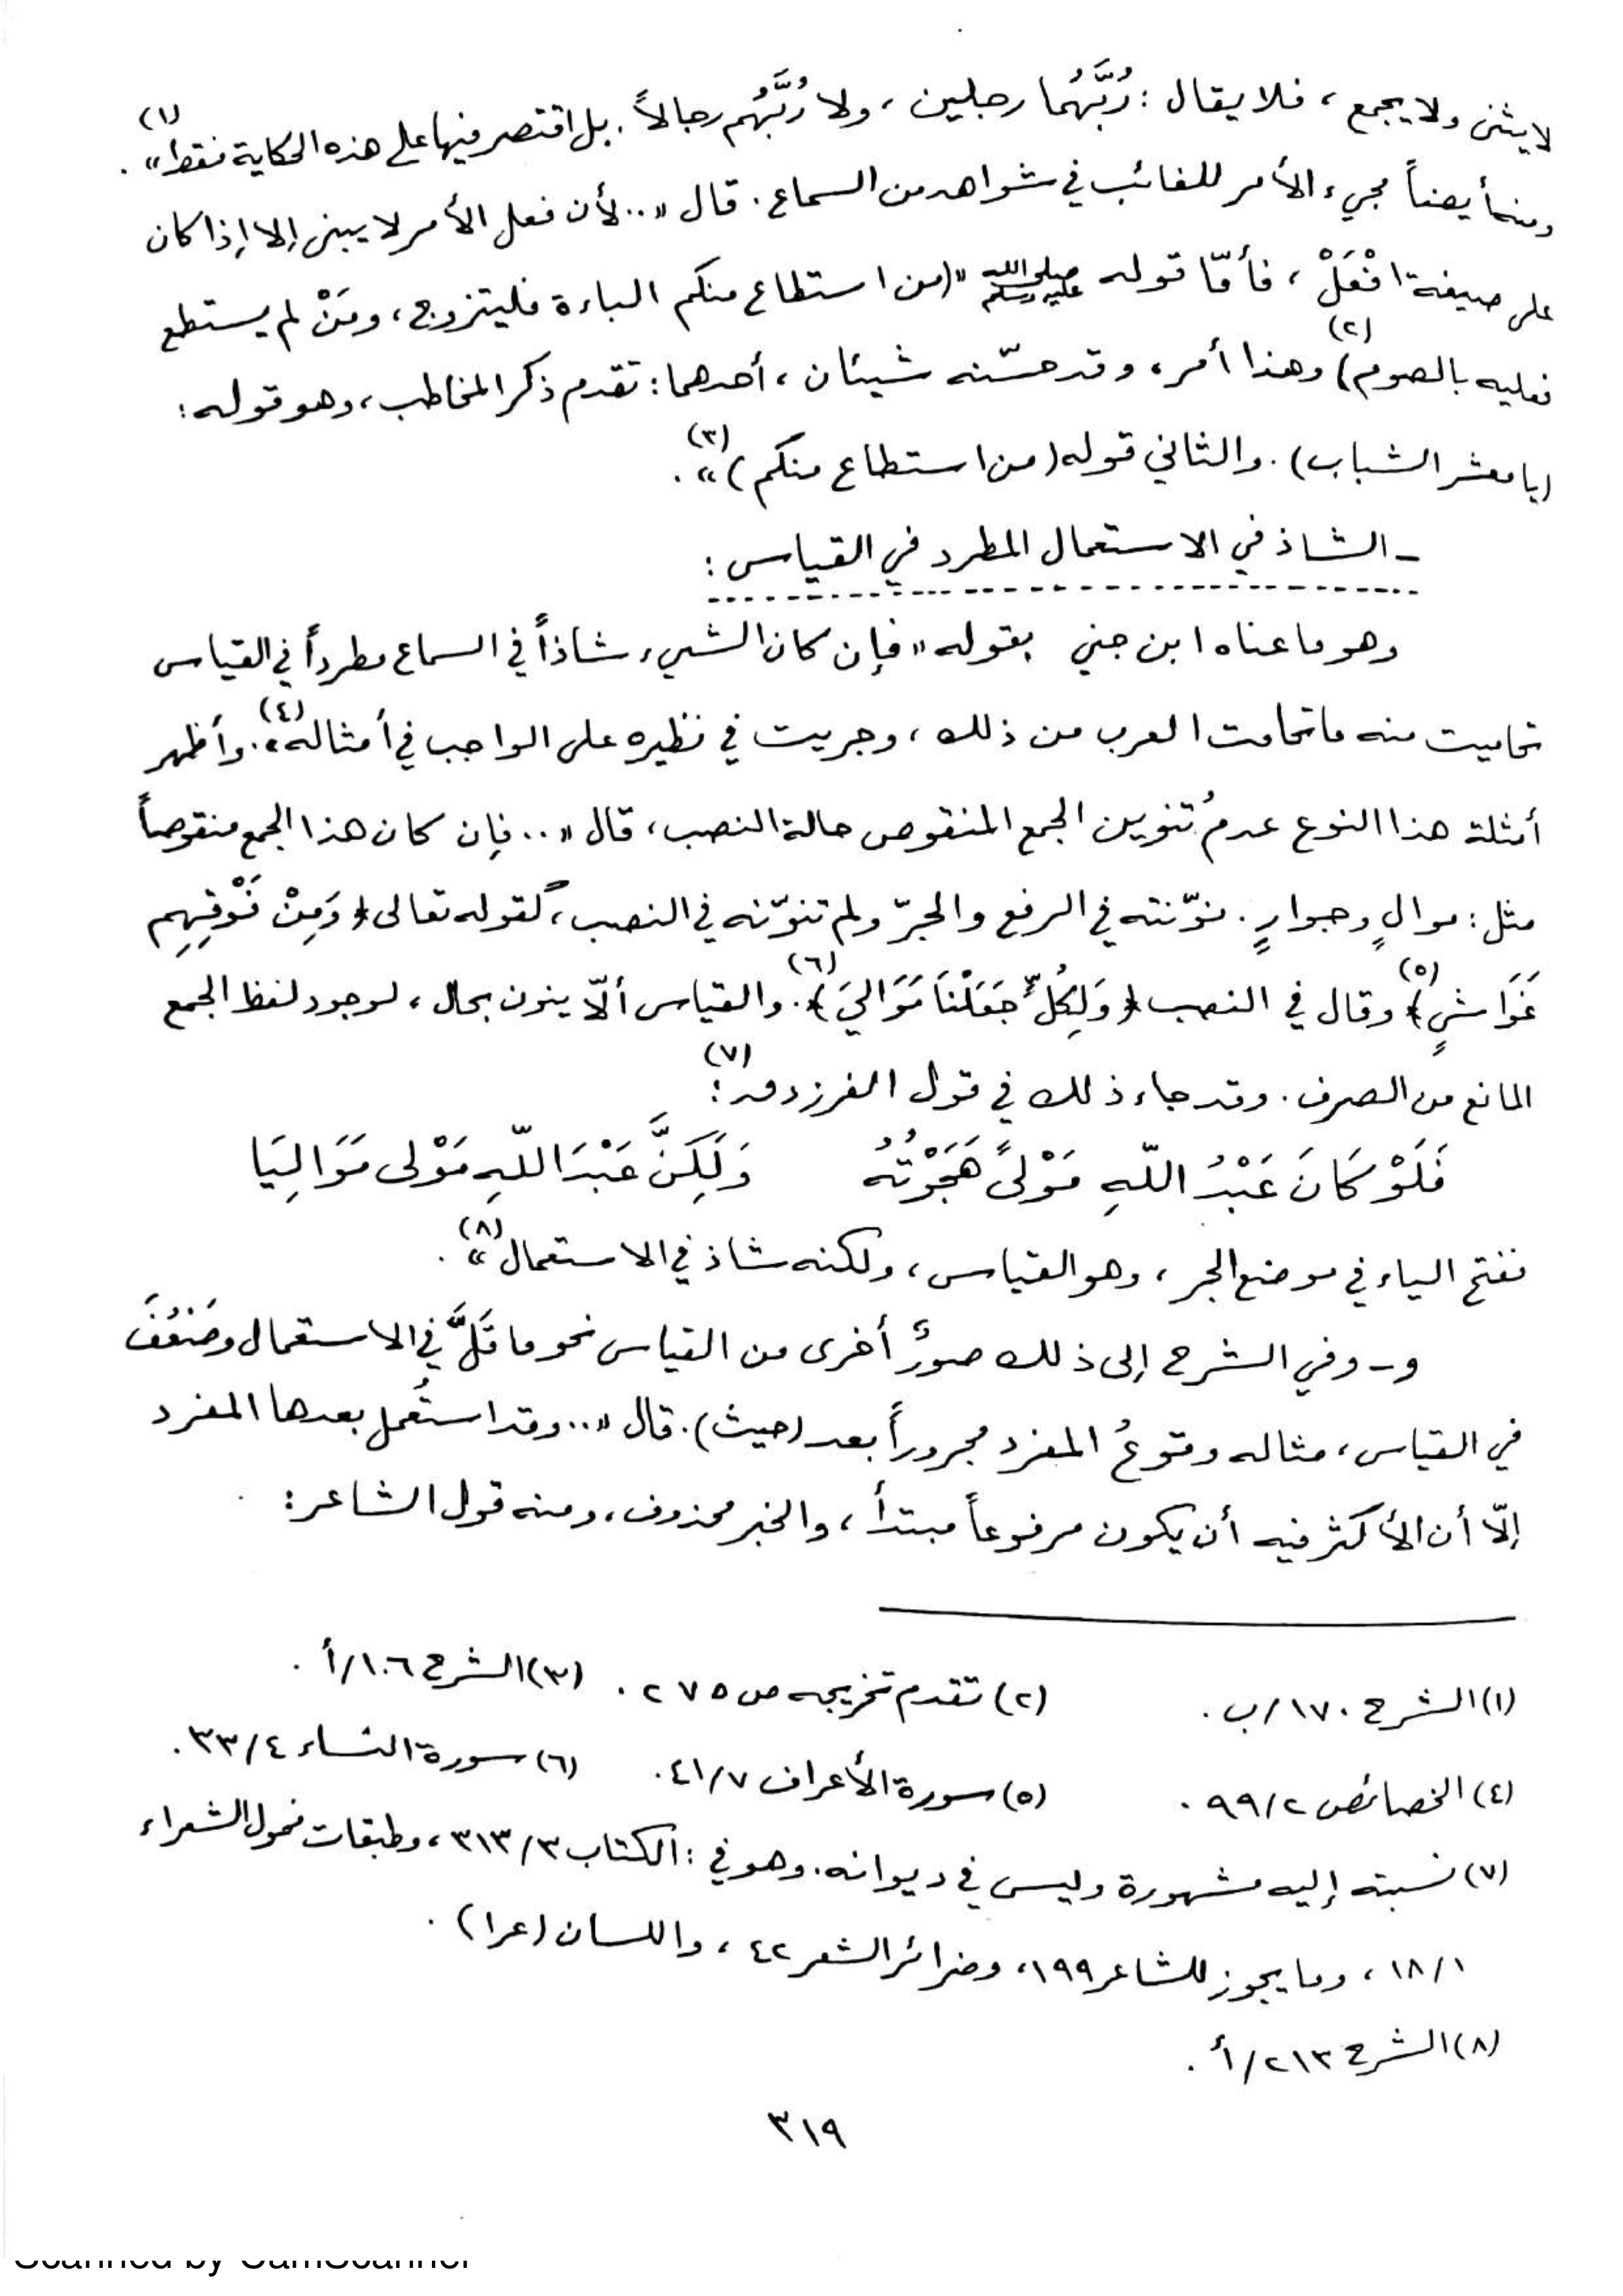 لا يثنى ولا يجمع، فلا يقال: رُبَّهُما رجلين، ولا رُبَّهُم رجالاً. بل اقتصر فيها على هذه الحكاية فقط»(١).
ومنه أيضاً مجيء الأمر للغائب في شواهد من السماع. قال «.. لأن فعل الأمر لا يبنى إلا إذا كان
على صيغة افْعَلْ، فأمّا قوله صلى الله عليه وسلم «(من استطاع منكم الباءة فليتزوج، ومَنْ لم يستطع
فعليه بالصوم)(٢) وهذا أمر، وقد حسّنه شيئان، أحدهما: تقدم ذكر المخاطب، وهو قوله:
(يا معشر الشباب). والثاني قوله (من استطاع منكم)»(٣).
- الشاذ في الاستعمال المطرد في القياس:
وهو ما عناه ابن جني بقوله «فإن كان الشيء شاذاً في السماع مطرداً في القياس
تحاميت منه ما تحامت العرب من ذلك، وجريت في نظيره على الواجب في أمثاله»(٤). وأظهر
أمثلة هذا النوع عدمُ تنوين الجمع المنقوص حالة النصب، قال «.. فإن كان هذا الجمع منقوصاً
مثل: موالٍ وجوارٍ. نوّنته في الرفع والجرّ ولم تنوّنه في النصب، كقوله تعالى ﴿وَمِنْ فَوْقِهِم
غَوَاشٍ﴾(٥) وقال في النصب ﴿وَلِكُلٍّ جَعَلْنَا مَوَالِيَ﴾(٦). والقياس ألّا ينون بحال، لوجود لفظ الجمع
المانع من الصرف. وقد جاء ذلك في قول الفرزدق(٧):
فَلَوْ كَانَ عَبْدُ اللّهِ مَوْلىً هَجَوْتُهُ وَلَكِنَّ عَبْدَ اللّهِ مَوْلى مَوَالِيَا
ففتح الياء في موضع الجر، وهو القياس، ولكنه شاذ في الاستعمال»(٨).
و- وفي الشرح إلى ذلك صورٌ أخرى من القياس نحو ما قَلَّ في الاستعمال وضَعُفَ
في القياس، مثاله وقوعُ المفرد مجروراً بعد (حيث). قال «.. وقد استُعمل بعدها المفرد
إلّا أن الأكثر فيه أن يكون مرفوعاً مبتدأ، والخبر محذوف، ومنه قول الشاعر:
(١) الشرح ١٧٠/ب. (٢) تقدم تخريجه ص ٢٧٥. (٣) الشرح ١٠٦/أ.
(٤) الخصائص ٩٩/٢. (٥) سورة الأعراف ٤١/٧. (٦) سورة النساء ٣٣/٤.
(٧) نسبته إليه مشهورة وليس في ديوانه. وهو في: الكتاب ٣١٣/٣، وطبقات فحول الشعراء
١٨/١، وما يجوز للشاعر ١٩٩، وضرائر الشعر ٤٢، واللسان (عرا).
(٨) الشرح ٢١٣/أ.
٣١٩
Scanned by CamScanner